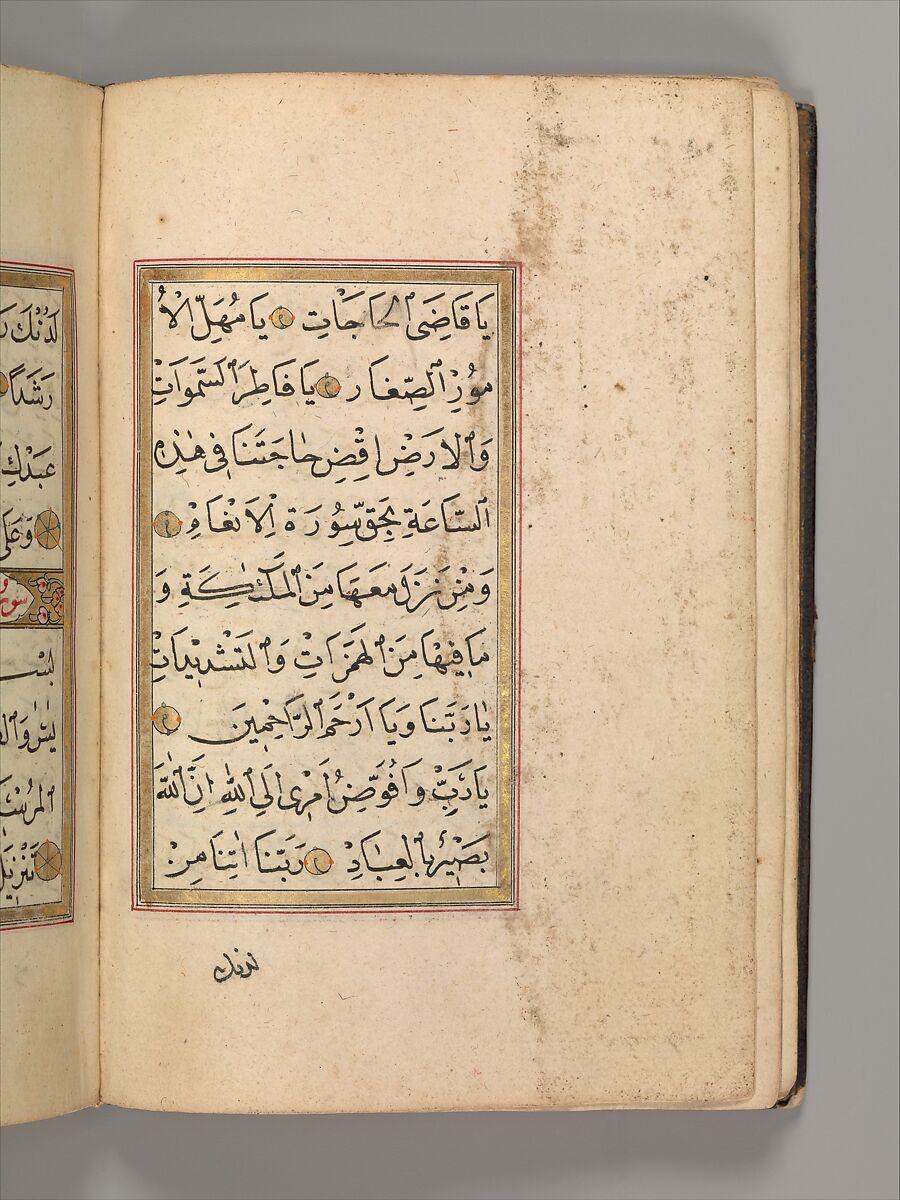 يَا قَاضِيَ ٱلْحَاجَاتِ يَا مُهِلَّ الْأُ
مُورِ ٱلصِّغَارِ يَا فَاطِرَ ٱلسَّمٰوَاتِ
وَٱلْارَضِ اِقْضِ حَاجَتَنَا فِى هٰذِهِ
ٱلسَّاعَةِ بِحَقِّ سُورَةِ اْلاَنْعَامِ
وَمَنْ نَزَلَ مَعَهَا مِنَ ٱلْمَلٰئِكَةِ وَ
مَا فِيهَا مِنَ ٱلْهَمَزَاتِ وَٱلتَّشْدِيدَاتِ
يَا رَبَّنَا وَيَا اَرْحَمَ ٱلرَّاحِمِينَ
يَا رَبِّ وَاُفَوِّضُ اَمْرِى اِلَى ٱللّٰهِ اِنَّ ٱللّٰهَ
بَصِيرٌ بِٱلْعِبَادِ رَبَّنَا اٰتِنَا مِنْ
لدنك
لَدُنْكَ
رَشَدًا
عَبْدِكَ
وَعَلَى
تَنْزِيلَ